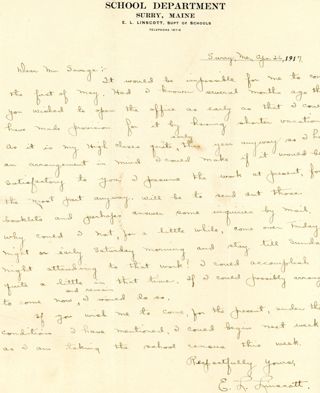 SCHOOL DEPARTMENT
SURRY, MAINE
E. L. LINSCOTT, SUPT OF SCHOOLS
TELEPHONE
Surry, Me, Apr. 26, 1917
Dear Mr. Savage:-
It would be impossible for me to com
the first of May. Had I known several months ago th
you wished to open the office as early as that I cou
have made provision for it by having shorter vacation
As it is my High closes quite early this year anyway so I ha
an arrangement in mind I could make if it would be
satisfactory to you. I presume the work at present, for
the most part anyway, will be to send out those
booklets and perhaps answer some inquiries by mail.
Why could I not, for a little while, come over Friday
night or early Saturday morning and stay till Sunda
night attending to that work? I could accomplish
quite a little in that time. If I could possibly arrang
to come now, and remain I would do so.
If you wish me to come, for the present, under the
condition I have mentioned, I could begin next week
as I am taking the school census this week.
Respectfully yours,
E. L. Linscott.